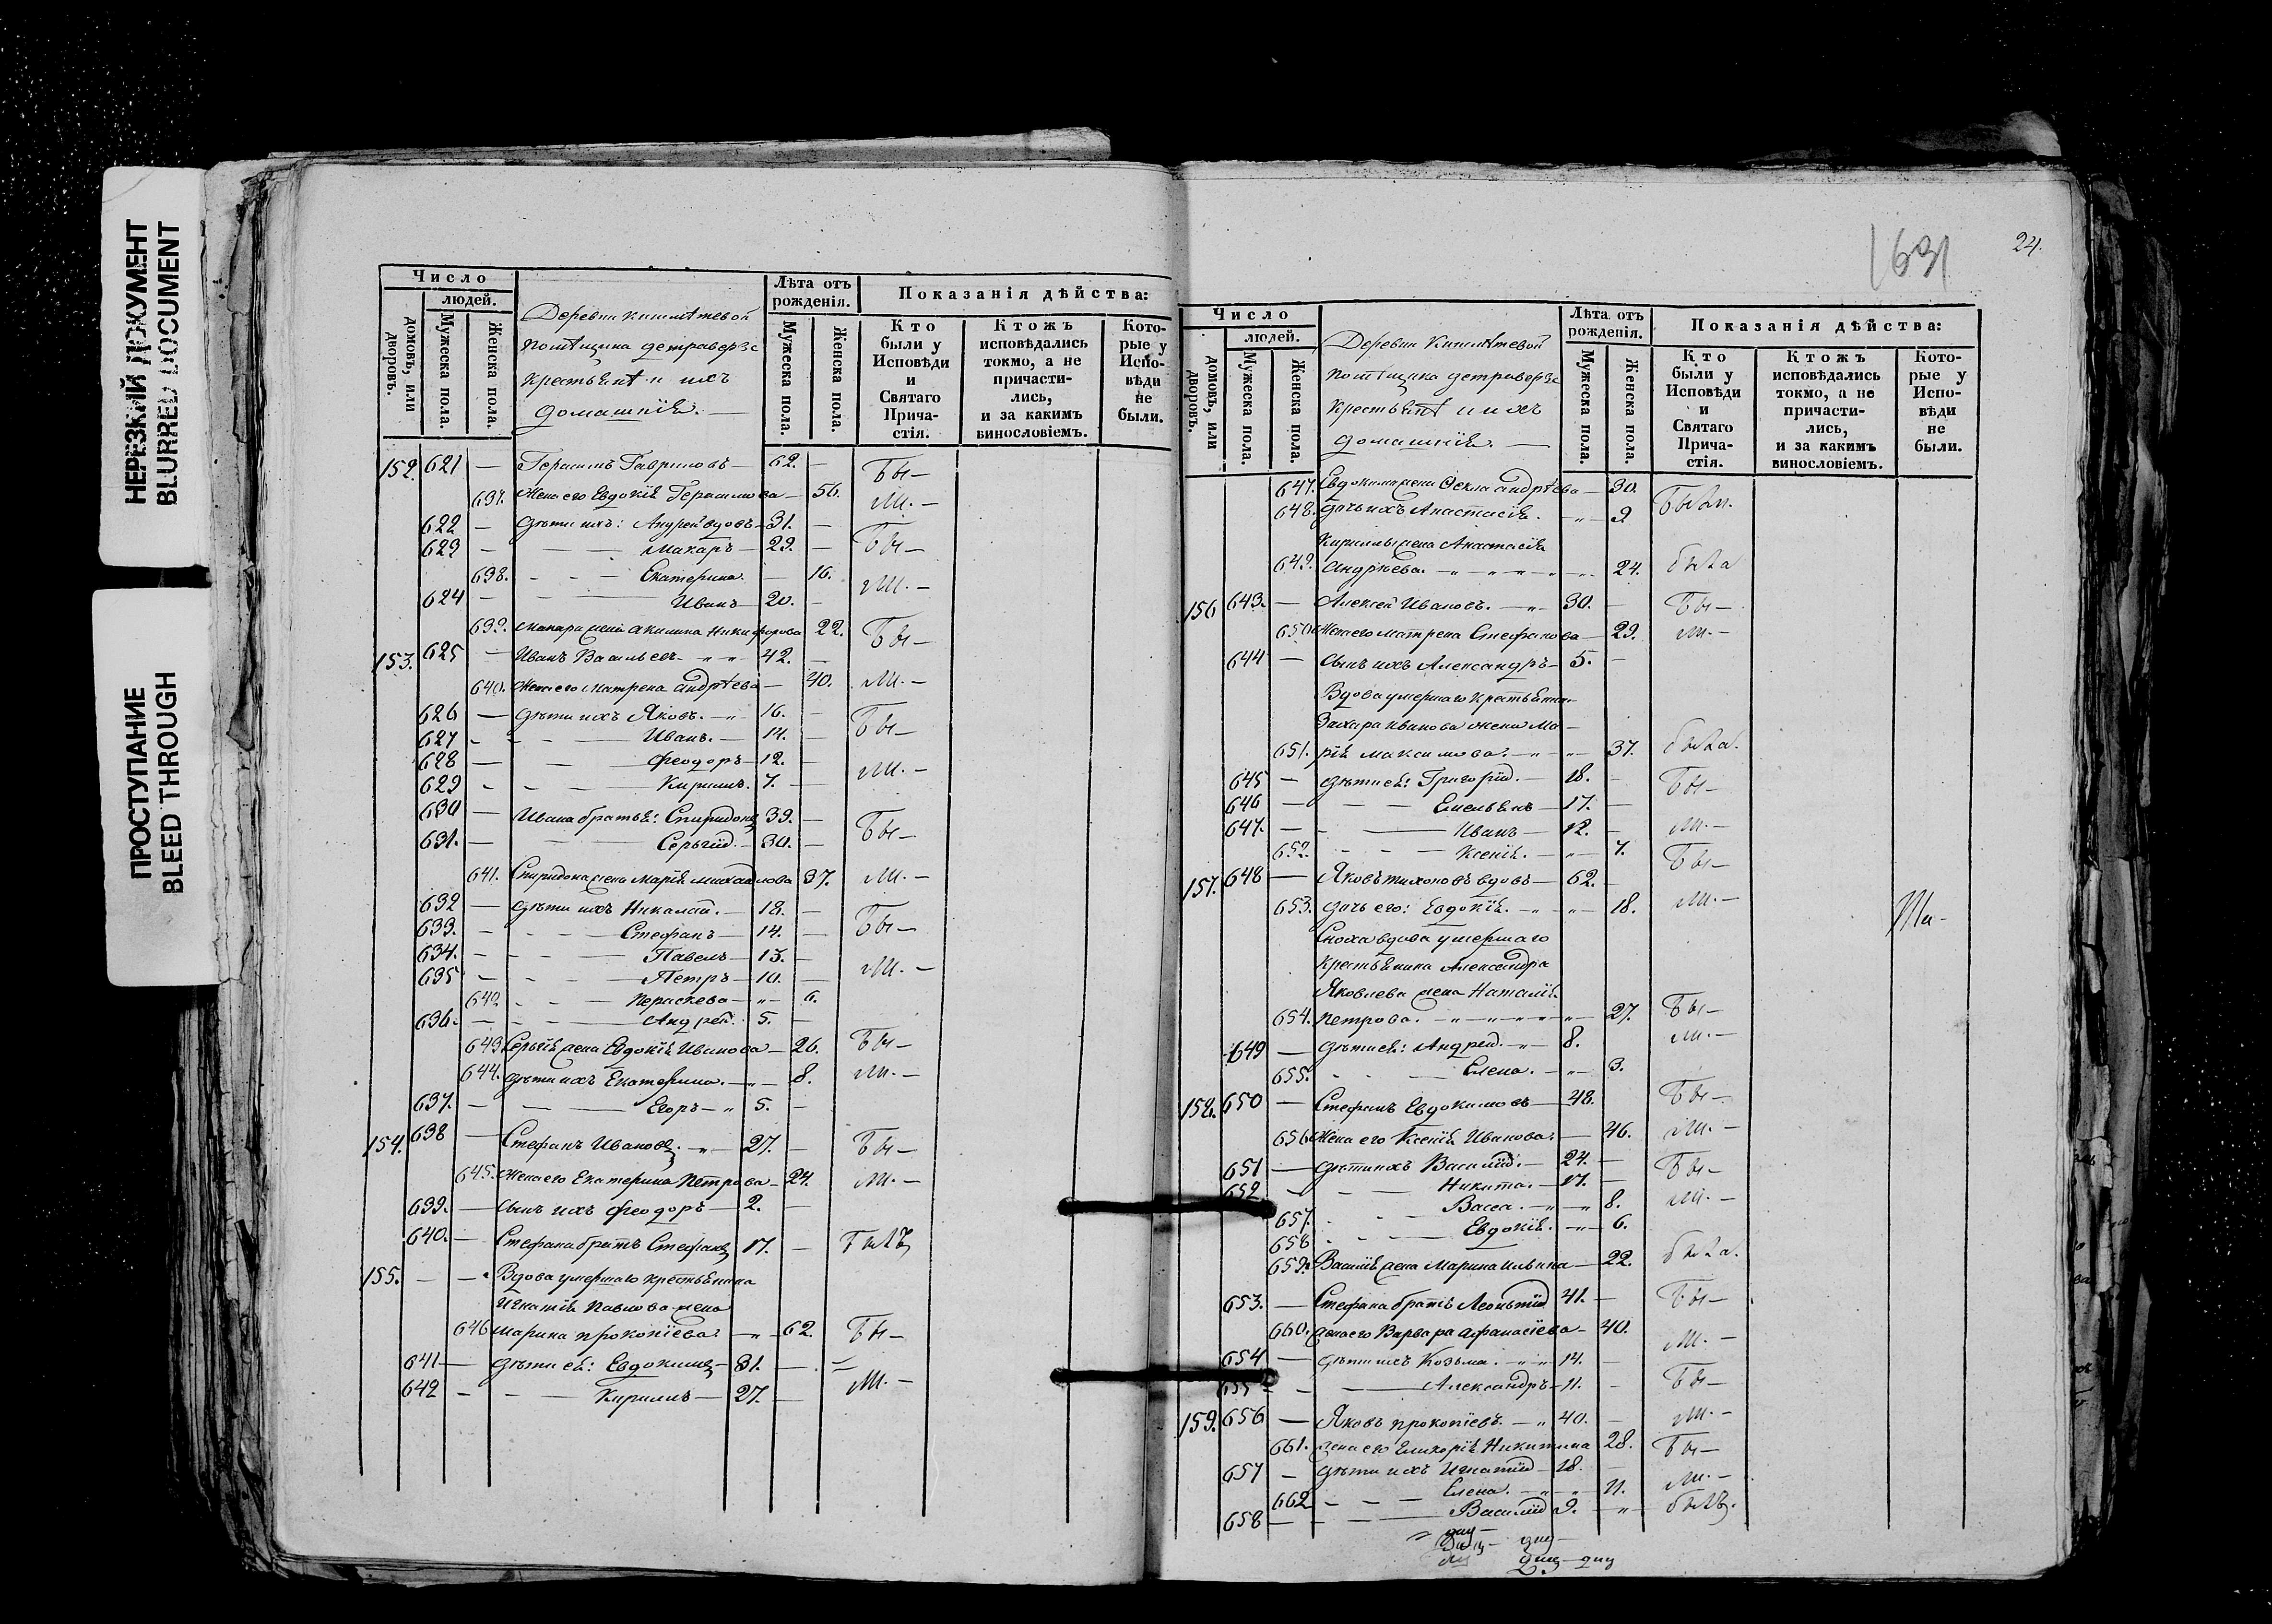 НЕРЕЗКИЙ ДОКУМЕНТ
BLURRED DOCUMENT
ПРОСТУПАНИЕ
BLEED THROUGH
Число
людей.
домовъ, или дворовъ.
Мужеска пола.
Женска пола.
Деревни
помѣщика
крестьянѣ и ихъ
домашнія.
Лѣта отъ рожденія.
Мужеска пола.
Женска пола.
Показанія дѣйства:
Кто были у Исповѣди и Святаго Причастія.
Ктожъ исповѣдались токмо, а не причастились, и за какимъ винословіемъ.
Которые у Исповѣди не были.
152. 621 — Герасимъ Гавриловъ — 62. — Бы—
637. Жена его Евдокія Герасимова — 56. ли. —
622 — дѣти ихъ: Андрей вдовъ — 31. —
623 — Макаръ — 29. — Бы—
638. Екатерина. — 16. ли. —
624 — Иванъ — 20. —
639. Макара жена Акилина Никифорова 22. Бы—
153. 625 — Иванъ Васильевъ. 42. —
640. Жена его Матрена Андрѣева — 40. ли. —
626 — дѣти ихъ Яковъ. — 16. —
627 — Иванъ. — 14. — Бы—
628 — Феодоръ — 12. —
629 — Кирилъ. 7. — ли. —
630 — Ивана братья: Спиридонъ 39. —
631. — Сергій — 30. — Бы—
641. Спиридона жена Марія Михайлова 37. ли. —
632 — дѣти ихъ Николай. — 18. —
633. — Стефанъ — 14. — Бы—
634. — Павелъ — 13. —
635 — Петръ — 10. — ли. —
642 Параскева — 6.
636. — Андрей. 5. —
643 Сергія жена Евдокія Иванова — 26. Бы—
644. дѣти ихъ Екатерина. — 8. ли. —
637. — Егоръ — 5. —
154. 638 — Стефанъ Ивановъ. 27. — Бы—
645. Жена его Екатерина Петрова — 24. ли. —
639. — сынъ ихъ Феодоръ — 2. —
640. — Стефана братъ Стефанъ 17. — Былъ
155. — Вдова умершаго крестьянина
Игнатія Павлова жена
646 Марина Прокопіева. — 62. Бы—
641 — дѣти ея: Евдокимъ — 31. —
642 — Кирилъ — 27. — ли. —
1631
24.
Число
людей.
домовъ, или дворовъ.
Мужеска пола.
Женска пола.
Деревни
помѣщика
крестьянѣ и ихъ
домашнія. —
Лѣта отъ рожденія.
Мужеска пола.
Женска пола.
Показанія дѣйства:
Кто были у Исповѣди и Святаго Причастія.
Ктожъ исповѣдались токмо, а не причастились, и за какимъ винословіемъ.
Которые у Исповѣди не были.
647. Евдокима жена Фекла Андрѣева — 30.
648. дочь ихъ Анастасія. — 2 Были.
Кирилы жена Анастасія
649. Андрѣева. 24. была
156 643. — Алексей Ивановъ. — 30. — Бы—
650 Жена его Матрена Стефанова — 29. ли. —
644 — сынъ ихъ Александръ — 5. —
Вдова умершаго крестьянина
Захара Иванова жена Ма—
651. рія Максимова. 37. была.
645 — дѣти ея: Григорій. — 18. —
646 — Емельянъ — 17. — Бы—
647. — Иванъ — 12. — ли. —
652. Ксенія. — 7.
157. 648 — Яковъ Тихоновъ вдовъ — 62. — Бы—
653. дочь его: Евдокія. — 18. ли. —
Сноха вдова умершаго
крестьянина Александра
Яковлева жена Наталія
654. Петрова. 27. Бы—
649 — дѣти ея: Андрей. 8. ли. —
655. Елена. — 3.
158. 650 — Стефанъ Евдокимовъ — 48. Бы—
656 Жена его Ксенія Иванова. — 46. ли. —
651 — дѣти ихъ Василій. — 24. —
652 — Никита. — 17. — Бы—
657. Васса. — 8. ли. —
658 Евдокія. — 6.
659. Василія жена Марина Ильина — 22. была.
653. — Стефана братъ Леонтій 41. — Бы—
660. жена его Варвара Афанасіева — 40. ли. —
654 — дѣти ихъ Козьма. — 14. —
655 — Александръ — 11. — Бы—
159. 656 — Яковъ Прокопіевъ. — 40. — ли. —
661. жена его Гликерія Никитина 28. Бы—
657 — дѣти ихъ Игнатій — 18. —
662 Елена. — 11. ли. —
658 — Василій 9. — былъ.